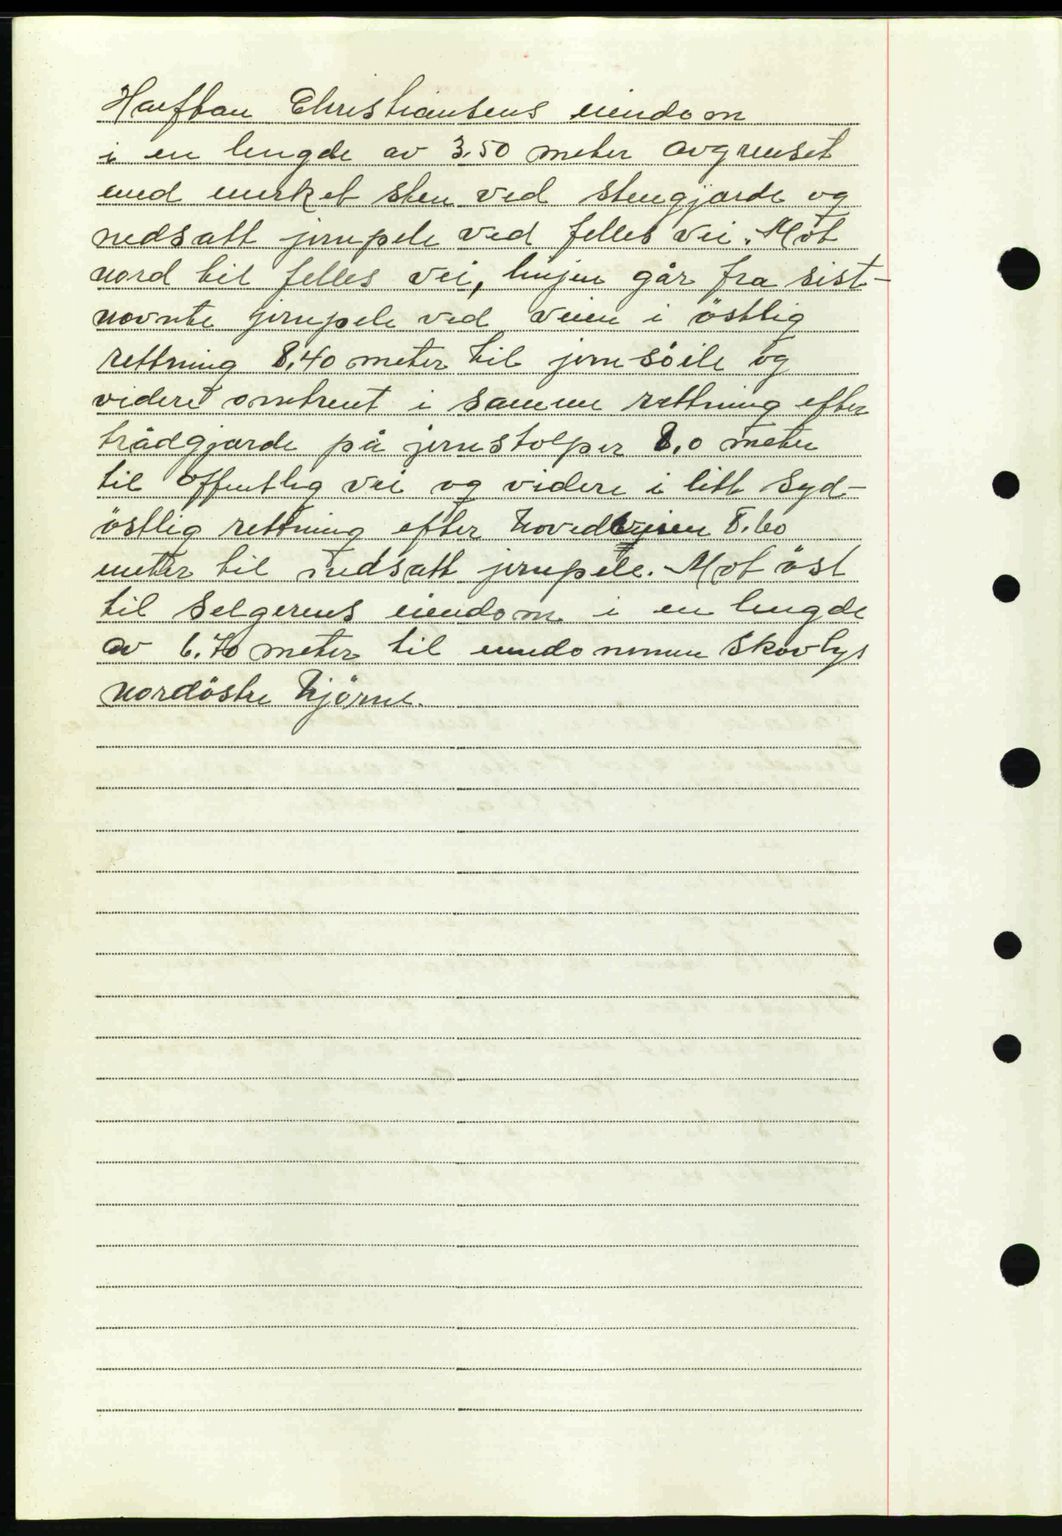 Haufbau Christiansens eiendom
i en lengde av 3.50 meter avgrenset
med merket sten ved stengjærde og
nedsatt jernpele ved felles vei. Mot
nord til felles vei, linjen går fra sist-
nevnte jernpele ved veien i östlig
rettning 8.40 meter til jernsöile og
videre omtrent i samme rettning efter
trådgjærde på jernstolper 8.0 meter
til offentlig vei og videre i litt Syd-
östlig rettning efter hovedveien 8.60
meter til nedsatt jernpele. Mot öst
til Selgerens eiendom i en lengde
av 6.70 meter til eiendommen Skovlys
nordöstre hjörne.